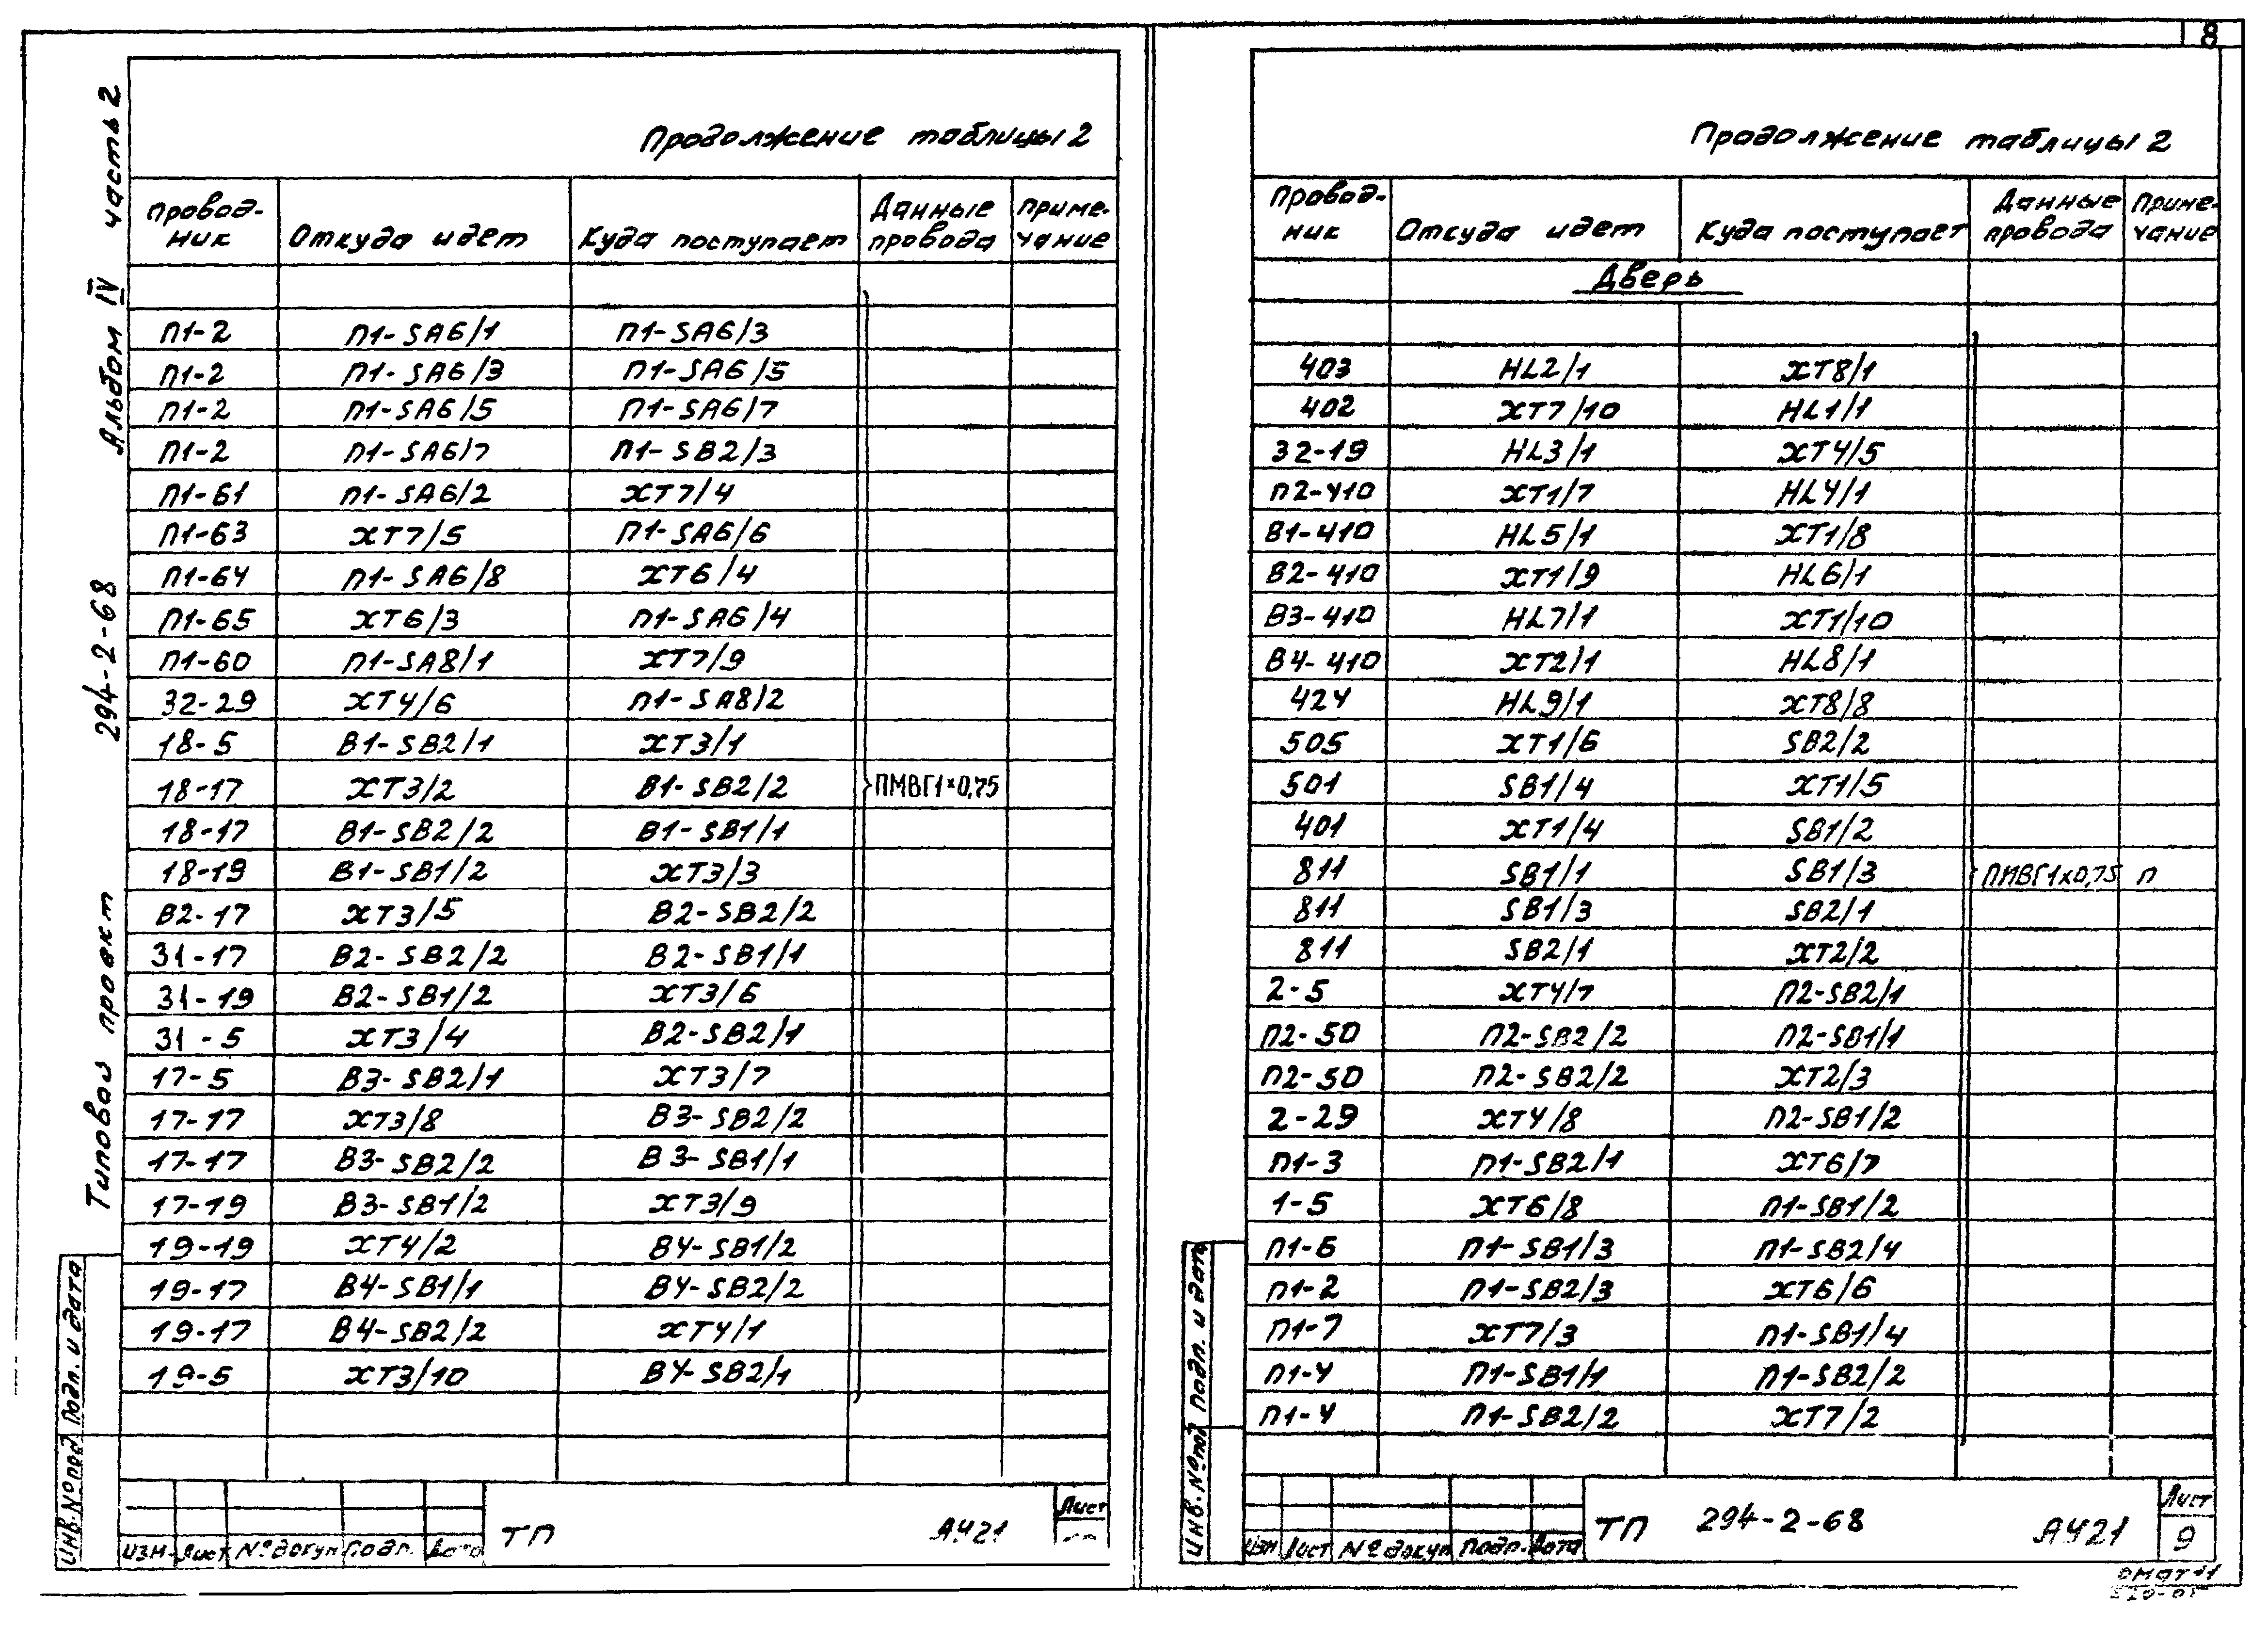 8
Альбом IV часть 2
294-2-68
Типовой проект
Продолжение таблицы 2
Провод-ник Откуда идет Куда поступает Данные провода Приме-чание
П1-2 П1-SA6/1 П1-SA6/3
П1-2 П1-SA6/3 П1-SA6/5
П1-2 П1-SA6/5 П1-SA6/7
П1-2 П1-SA6/7 П1-SB2/3
П1-61 П1-SA6/2 XT7/4
П1-63 XT7/5 П1-SA6/6
П1-64 П1-SA6/8 XT6/4
П1-65 XT6/3 П1-SA6/4
П1-60 П1-SA8/1 XT7/9
32-29 XT4/6 П1-SA8/2
18-5 В1-SB2/1 XT3/1
18-17 XT3/2 В1-SB2/2 ПМВГ1×0,75
18-17 В1-SB2/2 В1-SB1/1
18-19 В1-SB1/2 XT3/3
В2-17 XT3/5 В2-SB2/2
31-17 В2-SB2/2 В2-SB1/1
31-19 В2-SB1/2 XT3/6
31-5 XT3/4 В2-SB2/1
17-5 В3-SB2/1 XT3/7
17-17 XT3/8 В3-SB2/2
17-17 В3-SB2/2 В3-SB1/1
17-19 В3-SB1/2 XT3/9
19-19 XT4/2 В4-SB1/2
19-17 В4-SB1/1 В4-SB2/2
19-17 В4-SB2/2 XT4/1
19-5 XT3/10 В4-SB2/1
Инв.№подл Подп. и дата
Изм. Лист №докум Подп. Дата
ТП АЧ21
Лист
Продолжение таблицы 2
Провод-ник Откуда идет Куда поступает Данные провода Приме-чание
Дверь
403 HL2/1 XT8/1
402 XT7/10 HL1/1
32-19 HL3/1 XT4/5
П2-410 XT1/7 HL4/1
В1-410 HL5/1 XT1/8
В2-410 XT1/9 HL6/1
В3-410 HL7/1 XT1/10
В4-410 XT2/1 HL8/1
424 HL9/1 XT8/8
505 XT1/6 SB2/2
501 SB1/4 XT1/5
401 XT1/4 SB1/2
811 SB1/1 SB1/3 ПМВГ1×0,75 п
811 SB1/3 SB2/1
811 SB2/1 XT2/2
2-5 XT4/7 П2-SB2/1
П2-50 П2-SB2/2 П2-SB1/1
П2-50 П2-SB2/2 XT2/3
2-29 XT4/8 П2-SB1/2
П1-3 П1-SB2/1 XT6/7
1-5 XT6/8 П1-SB1/2
П1-6 П1-SB1/3 П1-SB2/4
П1-2 П1-SB2/3 XT6/6
П1-7 XT7/3 П1-SB1/4
П1-4 П1-SB1/1 П1-SB2/2
П1-4 П1-SB2/2 XT7/2
Инв.№подл Подп. и дата
Изм Лист №докум Подп. Дата
ТП 294-2-68 АЧ21
Лист
9